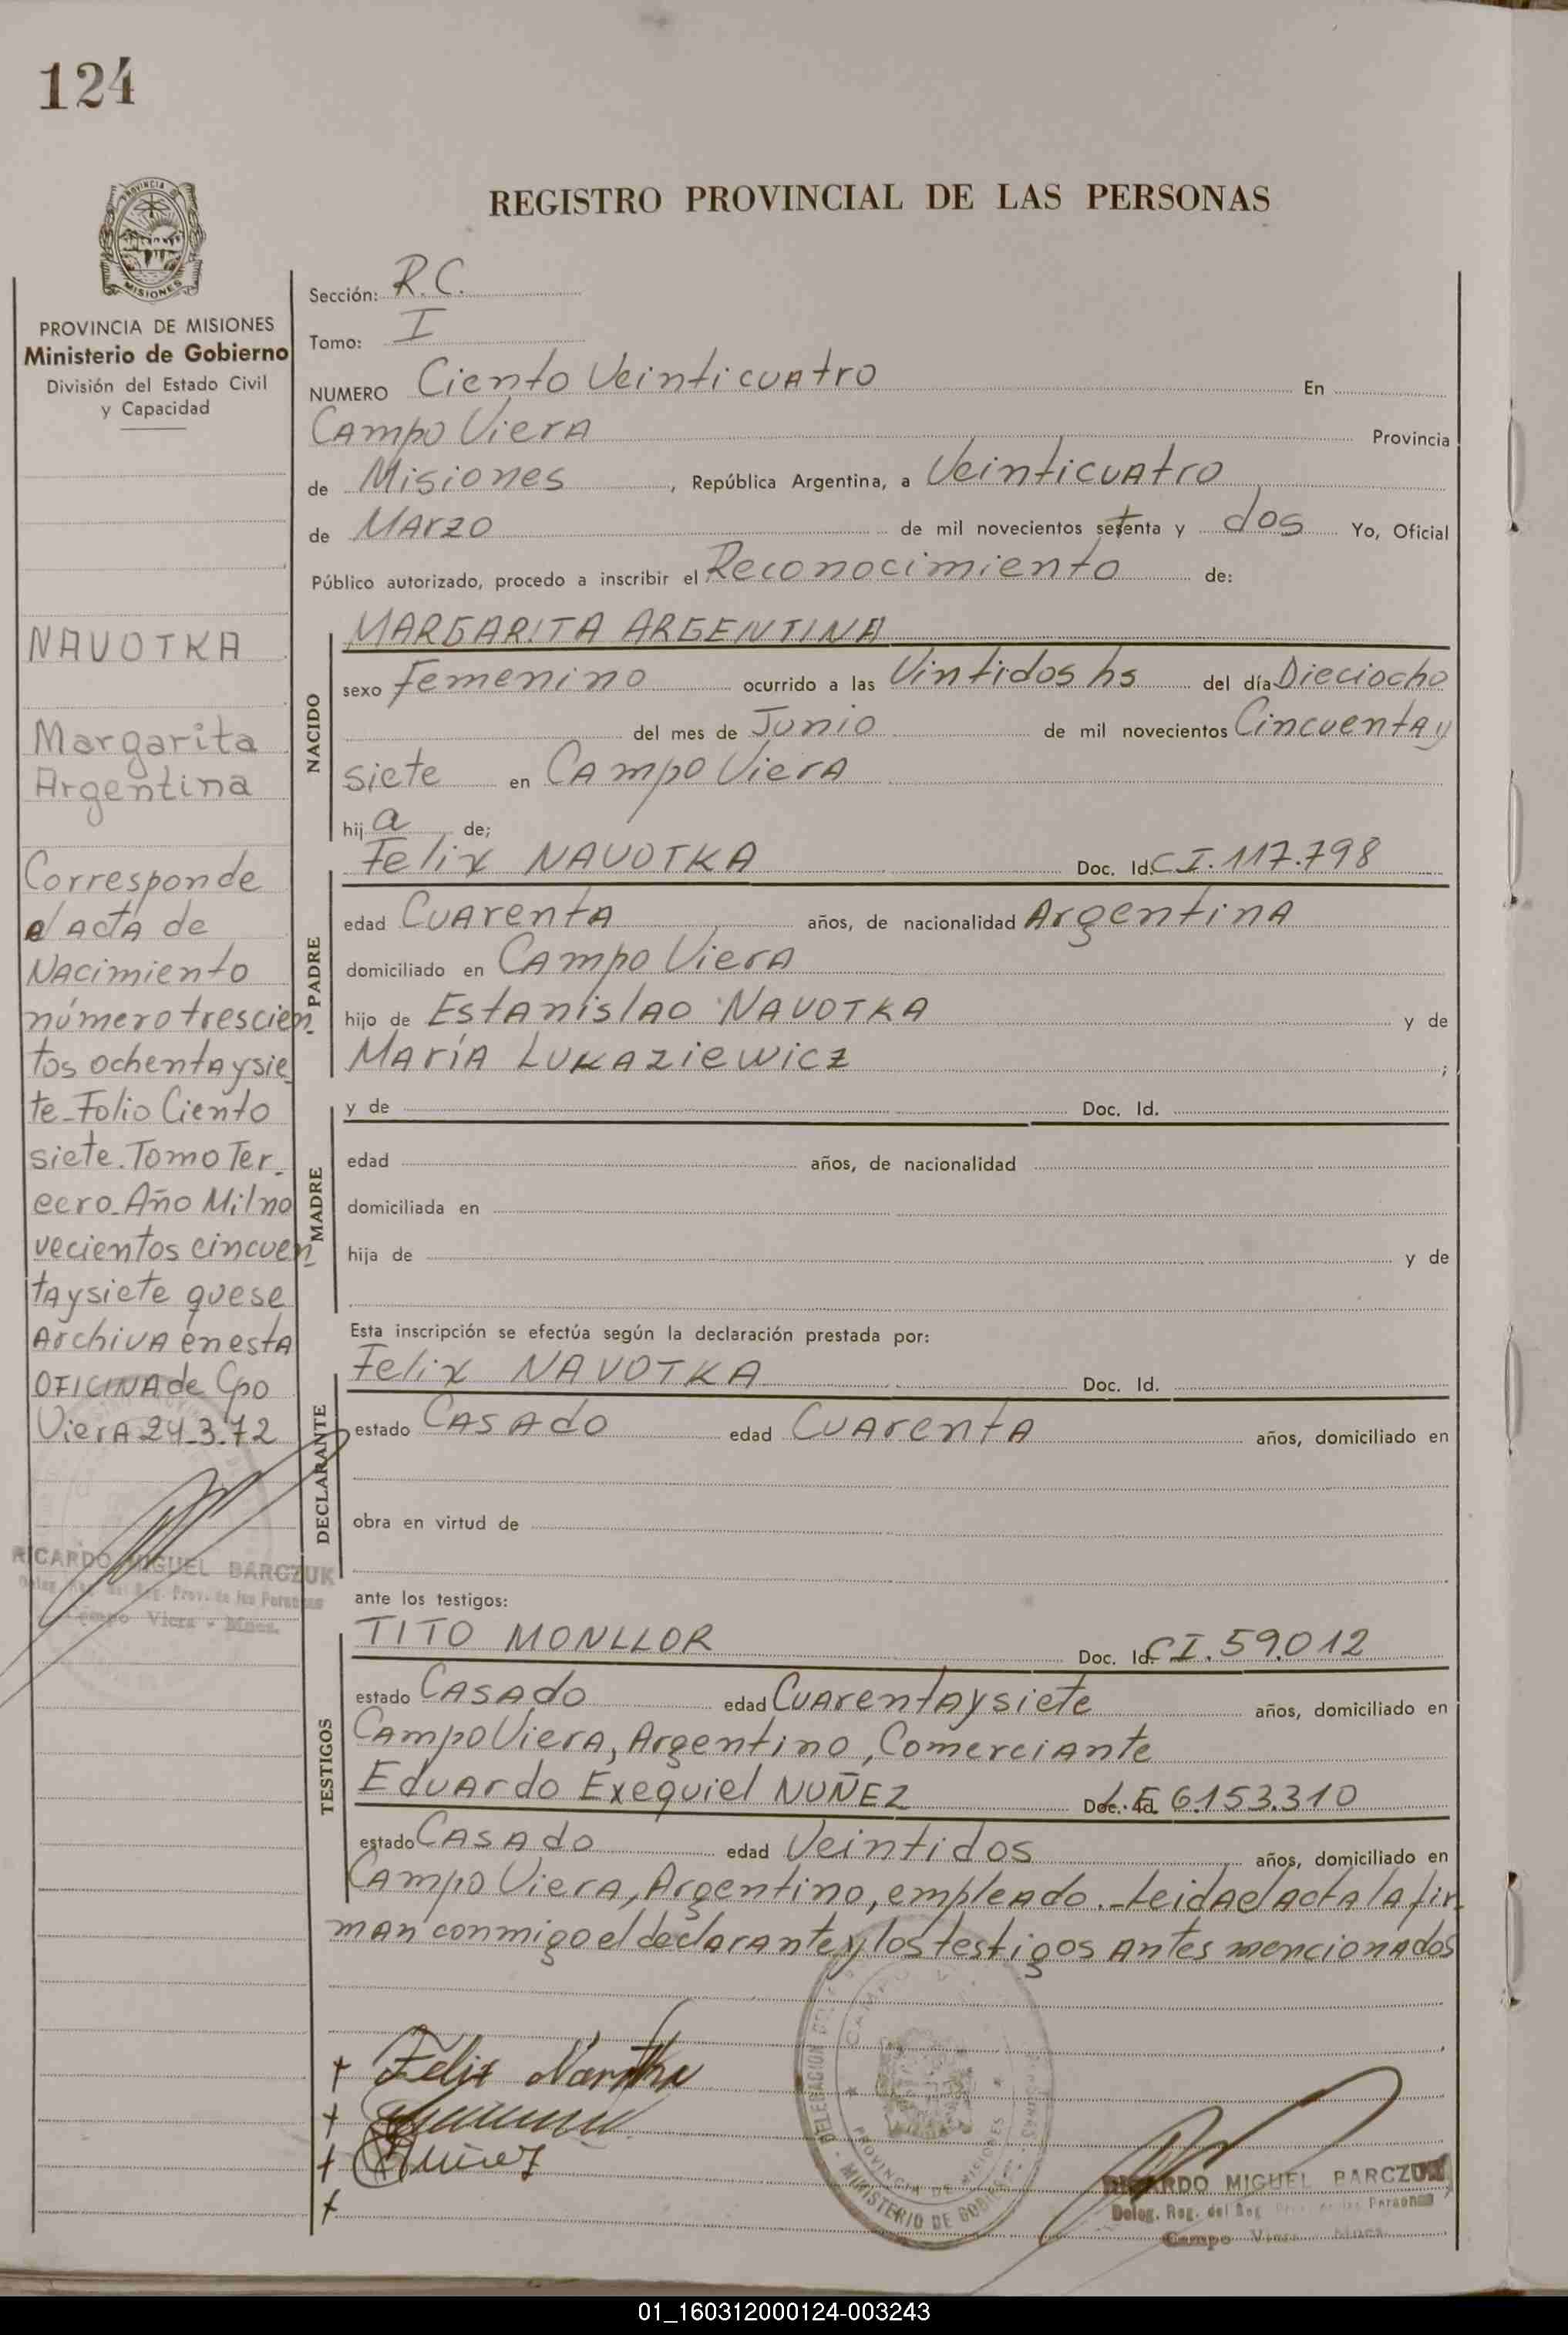 124
REGISTRO PROVINCIAL DE LAS PERSONAS
PROVINCIA
MISIONES
PROVINCIA DE MISIONES
Ministerio de Gobierno
División del Estado Civil
y Capacidad
NAVOTKA
Margarita
Argentina
Corresponde
al acta de
Nacimiento
número trescien
tos ochenta y sie
te - Folio Ciento
siete. Tomo Ter-
cero - Año Mil no
vecientos cincuen
ta y siete que se
Archiva en esta
OFICINA de Cpo
Viera 24-3-72
RICARDO MIGUEL BARCZUK
Deleg. Reg. del Reg. Prov. de las Personas
Campo Viera - Mnes.
Sección: R.C.
Tomo: I
NUMERO Ciento Veinticuatro En
Campo Viera Provincia
de Misiones, República Argentina, a Veinticuatro
de Marzo de mil novecientos setenta y dos Yo, Oficial
Público autorizado, procedo a inscribir el Reconocimiento de:
NACIDO
MARGARITA ARGENTINA
sexo Femenino ocurrido a las Vintidos hs del día Dieciocho
del mes de Junio de mil novecientos Cincuenta y
siete en Campo Viera
hija de;
PADRE
Felix NAVOTKA Doc. Id. C.I. 117.798
edad Cuarenta años, de nacionalidad Argentina
domiciliado en Campo Viera
hijo de Estanislao NAVOTKA y de
María Lukaziewicz ;
MADRE
y de Doc. Id.
edad años, de nacionalidad
domiciliada en
hija de y de
Esta inscripción se efectúa según la declaración prestada por:
DECLARANTE
Felix NAVOTKA Doc. Id.
estado Casado edad Cuarenta años, domiciliado en
obra en virtud de
ante los testigos:
TESTIGOS
TITO MONLLOR Doc. Id. C.I. 59.012
estado Casado edad Cuarenta y siete años, domiciliado en
Campo Viera, Argentino, Comerciante
Eduardo Exequiel NUÑEZ Doc. Id. L.E 6.153.310
estado Casado edad Veintidos años, domiciliado en
Campo Viera, Argentino, empleado. - Leida el acta la fir-
man conmigo el declarante y los testigos antes mencionados
Felix Navotka
Nuñez
DELEGACION DEL
CAMPO
PROVINCIA DE MISIONES
MINISTERIO DE GOBIERNO
RICARDO MIGUEL BARCZUK
Deleg. Reg. del Reg. Prov. de las Personas
Campo Viera - Mnes.
01_160312000124-003243